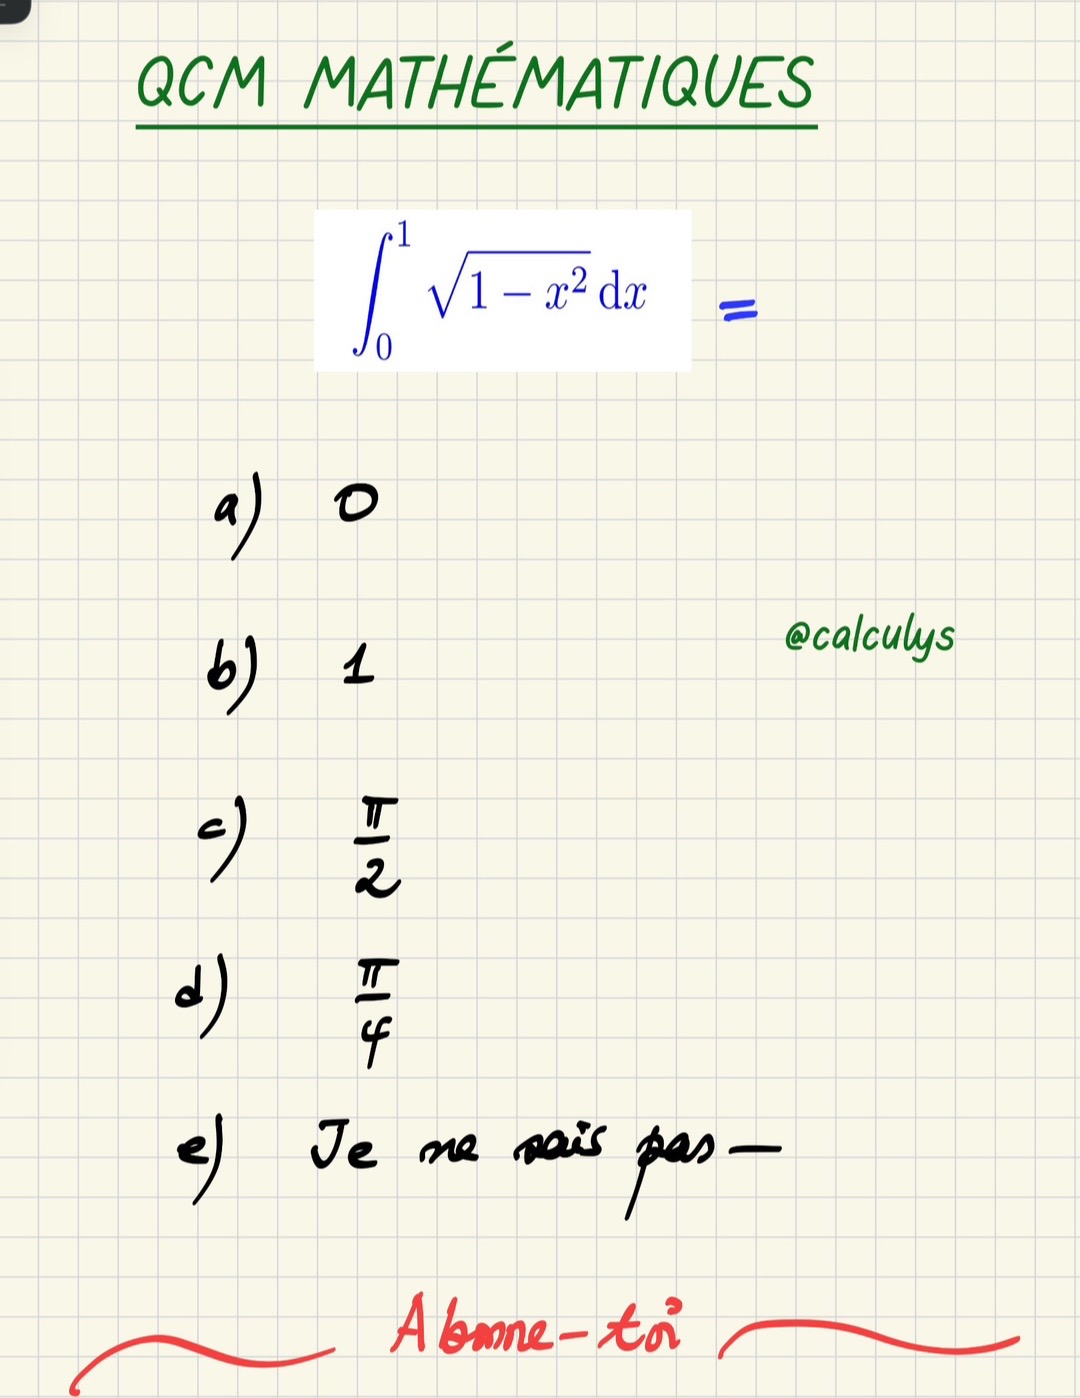 QCM MATHÉMATIQUES
∫₀¹ √(1 − x²) dx =
a) 0
@calculys
b) 1
c) π/2
d) π/4
e) Je ne sais pas —
Abonne-toi